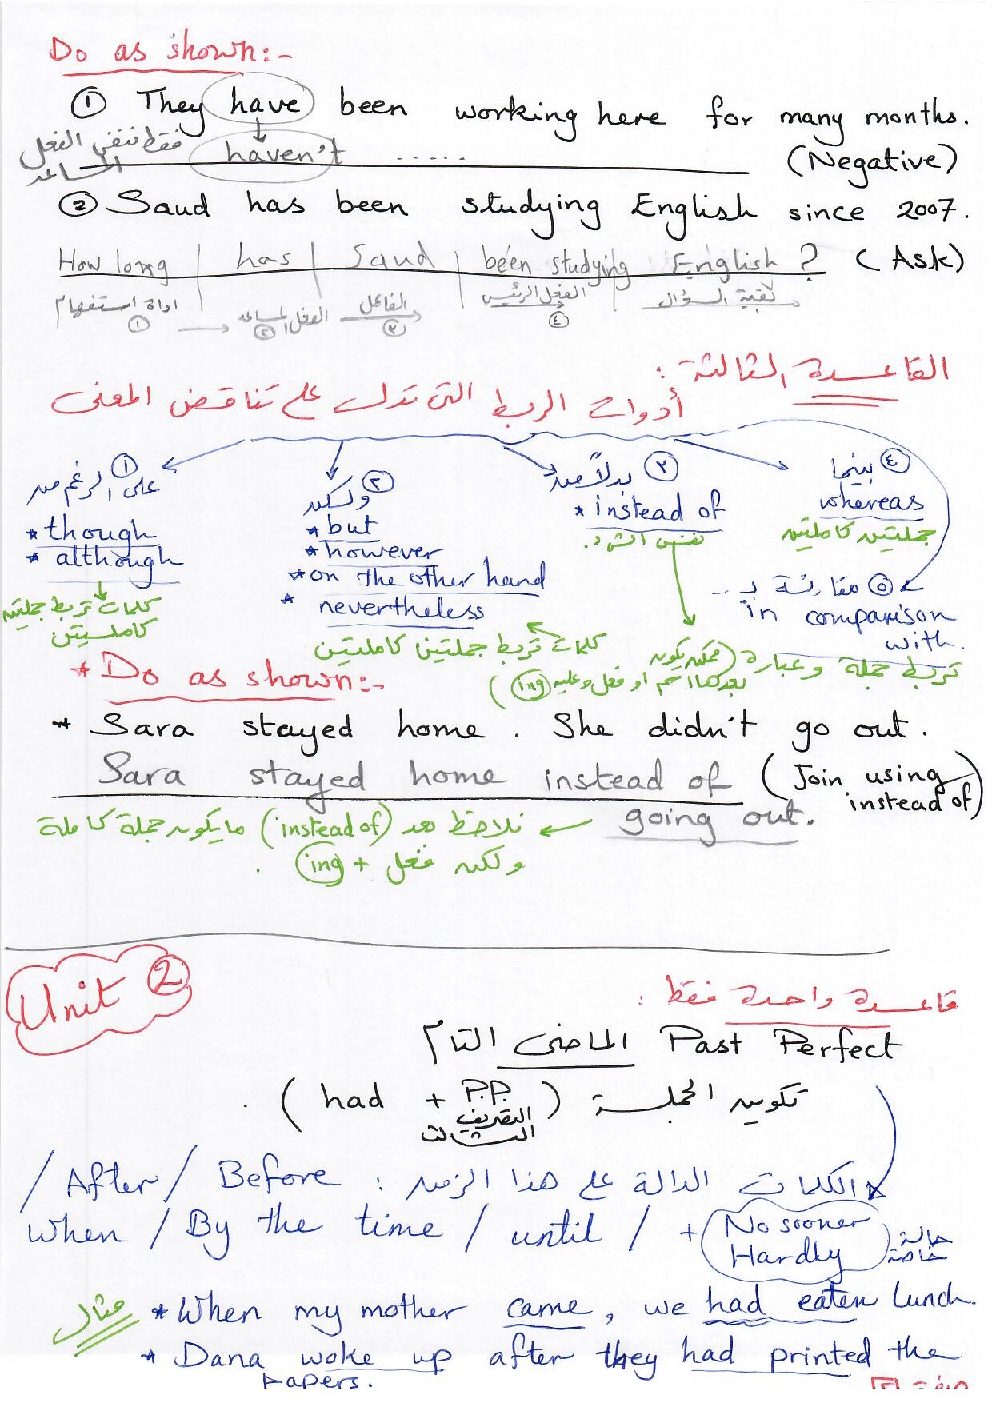 Do as shown:-
① They have been working here for many months.
فقط ننفي الفعل المساعد haven't ..... (Negative)
② Saud has been studying English since 2007.
How long | has | Saud | been studying English ? (Ask)
اداة استفهام ① الفعل المساعد ② الفاعل ③ الفعل الرئيسي ④ بقية السؤال
القاعدة الثالثة :
أدوات الربط التي تدل على تناقض المعنى
① على الرغم من
* though
* although
كلمات تربط جملتين
كاملتين
② ولكن
* but
* however
* on the other hand
* nevertheless
كلمات تربط جملتين كاملتين
③ بدلاً من
* instead of
نفس الشرح.
④ بينما
whereas
جملتين كاملتين
⑤ مقارنة بـ ...
in comparison
with.
تربط جملة وعبارة (ممكن يكون
بعدها اسم او فعل وعليه ing)
* Do as shown:-
* Sara stayed home . She didn't go out .
Sara stayed home instead of (Join using
instead of)
going out.
نلاحظ بعد (instead of) ما يكون جملة كاملة
ولكن فعل + ing .
Unit ②
قاعدة واحدة فقط :
الماضي التام Past Perfect
تكوين الجملة (had + P.P.) .
التصريف
الثالث
* الكلمات الدالة على هذا الزمن : / After / Before
When / By the time / until / + (No sooner
Hardly) حالة خاصة
مثال * When my mother came, we had eaten lunch.
* Dana woke up after they had printed the
papers.